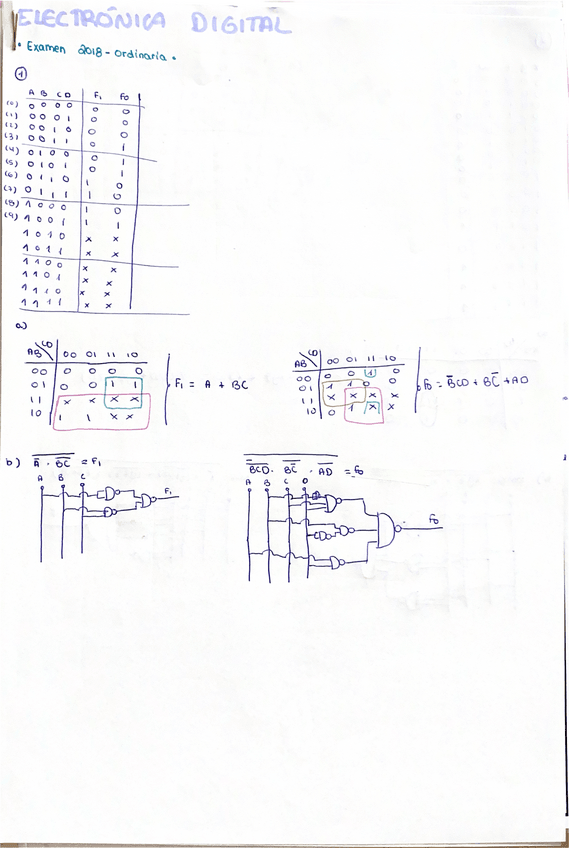 ELECTRÓNICA DIGITAL
• Examen 2018 - Ordinaria •
1
A B C D F₁ F₀
(0) 0 0 0 0 0 0
(1) 0 0 0 1 0 0
(2) 0 0 1 0 0 0
(3) 0 0 1 1 0 1
(4) 0 1 0 0 0 1
(5) 0 1 0 1 0 1
(6) 0 1 1 0 1 0
(7) 0 1 1 1 1 0
(8) 1 0 0 0 1 0
(9) 1 0 0 1 1 1
1 0 1 0 x x
1 0 1 1 x x
1 1 0 0 x x
1 1 0 1 x x
1 1 1 0 x x
1 1 1 1 x x
a)
AB CD 00 01 11 10
00 0 0 0 0
01 0 0 1 1
11 x x x x
10 1 1 x x
F₁ = A + BC
AB CD 00 01 11 10
00 0 0 1 0
01 1 1 0 0
11 x x x x
10 0 1 x x
F₀ = B̅CD + BC̅ + AD
b) A̅ · B̅C̅ = F₁
A B C
F₁
BCD · BC̅ · AD = F₀
A B C D
F₀